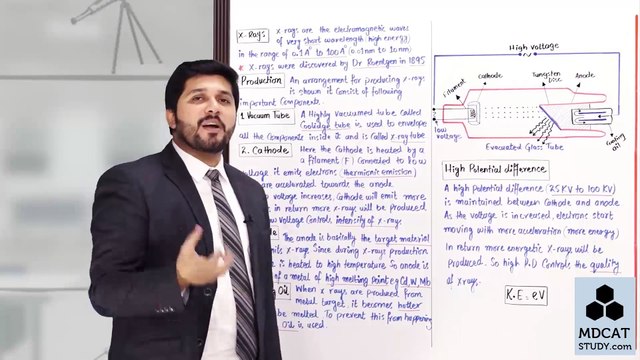 X-Rays
x rays are the electromagnetic waves
of very short wavelength (high energy)
in the range of 0.1A° to 100A° (0.01nm to 10nm)
* X-rays were discovered by Dr Roentgen in 1895
Production
An arrangement for producing x-rays
is shown it consist of following
important components.
1 Vacuum Tube
A Highly vacuumed tube called
Coolidge tube is used to envelope
all the components inside it and is called X-ray tube
2. Cathode
Here the Cathode is heated by a
a filament (F) Connected to low
voltage it emits electrons (thermionic emission)
are accelerated towards the anode
voltage increases, Cathode will emit more
in return more x-rays will be produced
voltage Controls intensity of x-rays
The anode is basically the target material
X-rays. Since during x-rays production
is heated to high temperature so anode is
of a metal of high melting point e.g Cd, W, Mb
Oil
When x rays are produced from
metal target it becomes hotter
be melted. To prevent this from happening
Oil is used.
High voltage
filament
cathode
Tungsten
Disc
Anode
low
voltage
Cooling
oil
Evacuated Glass Tube
High Potential difference
A high potential difference (25 KV to 100 KV)
is maintained between Cathode and anode
As the voltage is increased, electrons start
moving with more acceleration (more energy)
In return more energetic X-rays will be
produced. So high P.D Controls the quality
of x rays.
K.E = eV
MDCAT
STUDY.com